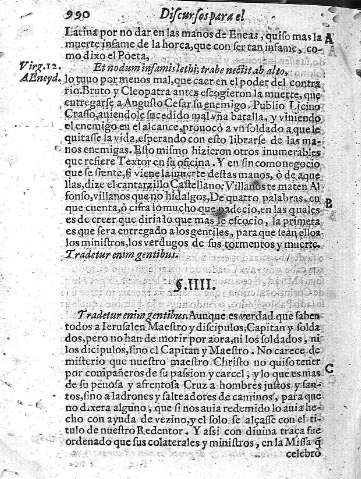 990 Discursos para el
Latina por no dar en las manos de Eneas, quiso mas la A
muerte infame de la horca, que con ser tan infame, co-
mo dixo el Poeta.
Virg. 12. Et nodum informis lethi, trabe nectit ab alto,
AEneyd. lo tuuo por menos mal, que caer en el poder del contra
rio. Bruto y Cleopatra antes escogieron la muerte, que
entregarse a Augusto Cesar su enemigo. Publio Licino
Crasso, auiendole sucedido mal vna batalla, y viniendo
el enemigo en el alcance, prouocò a vn soldado a que le
quitasse la vida, esperando con esto librarse de las ma-
nos enemigas. Esto mismo hizieron otros inumerables
que refiere Textor en su oficina. Y en fin como negocio
que se siente, si viene la muerte destas manos, ò de aque
llas, dize el cantarzillo Castellano; Villanos te maten Al
fonso, villanos que no hidalgos. De quatro palabras, en B
que cuenta, ò cifra lo mucho que padecio, en las quales
es de creer que diria lo que mas le escocio, la primera
es que sera entregado a los gentiles, para que sean ellos
los ministros, los verdugos de sus tormentos y muerte.
Tradetur enim gentibus.
§. IIII.
Tradetur enim gentibus. Aunque es verdad que suben
todos a Ierusalen Maestro y discipulos, Capitan y solda
dos, pero no han de morir por aora, ni los soldados, ni
los dicipulos, sino el Capitan y Maestro. No carece de
misterio que nuestro maestro Christo no quiso tener
por compañeros de su passion y carcel, y lo que es mas C
de su penosa y afrentosa Cruz a hombres justos y san-
tos, sino a ladrones y salteadores de caminos, para que
no dixera alguno, que si nos auia redemido lo auia he-
cho con ayuda de vezino, y el solo se alçasse con el ti-
tulo de nuestro Redentor. Y assi con diuina traça fue
ordenado que sus colaterales y ministros, en la Missa q̃
celebrò